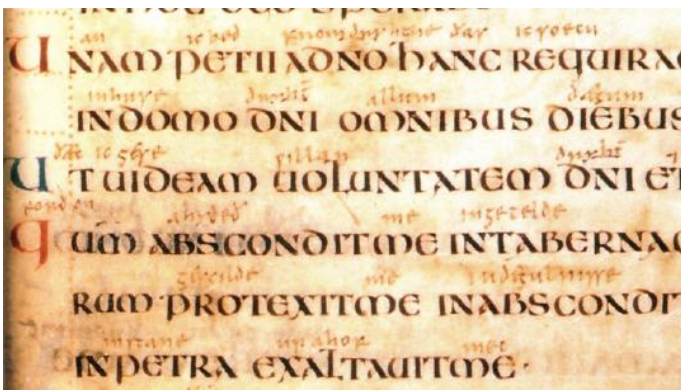 an ic bed ic soecu
UNAM PETII ADNO HANC REQUIRA
inhuse dryht allum dagum
INDOMO DNI OMNIBUS DIEBUS
ic gese willan dryht
UT UIDEAM UOLUNTATEM DNI ET
ahyded me ingetelde
QUM ABSCONDITME INTABERNAC
gescilde me indegulnisse
RUM PROTEXITME INABSCONDIT
instane upahof mec
INPETRA EXALTAUITME·